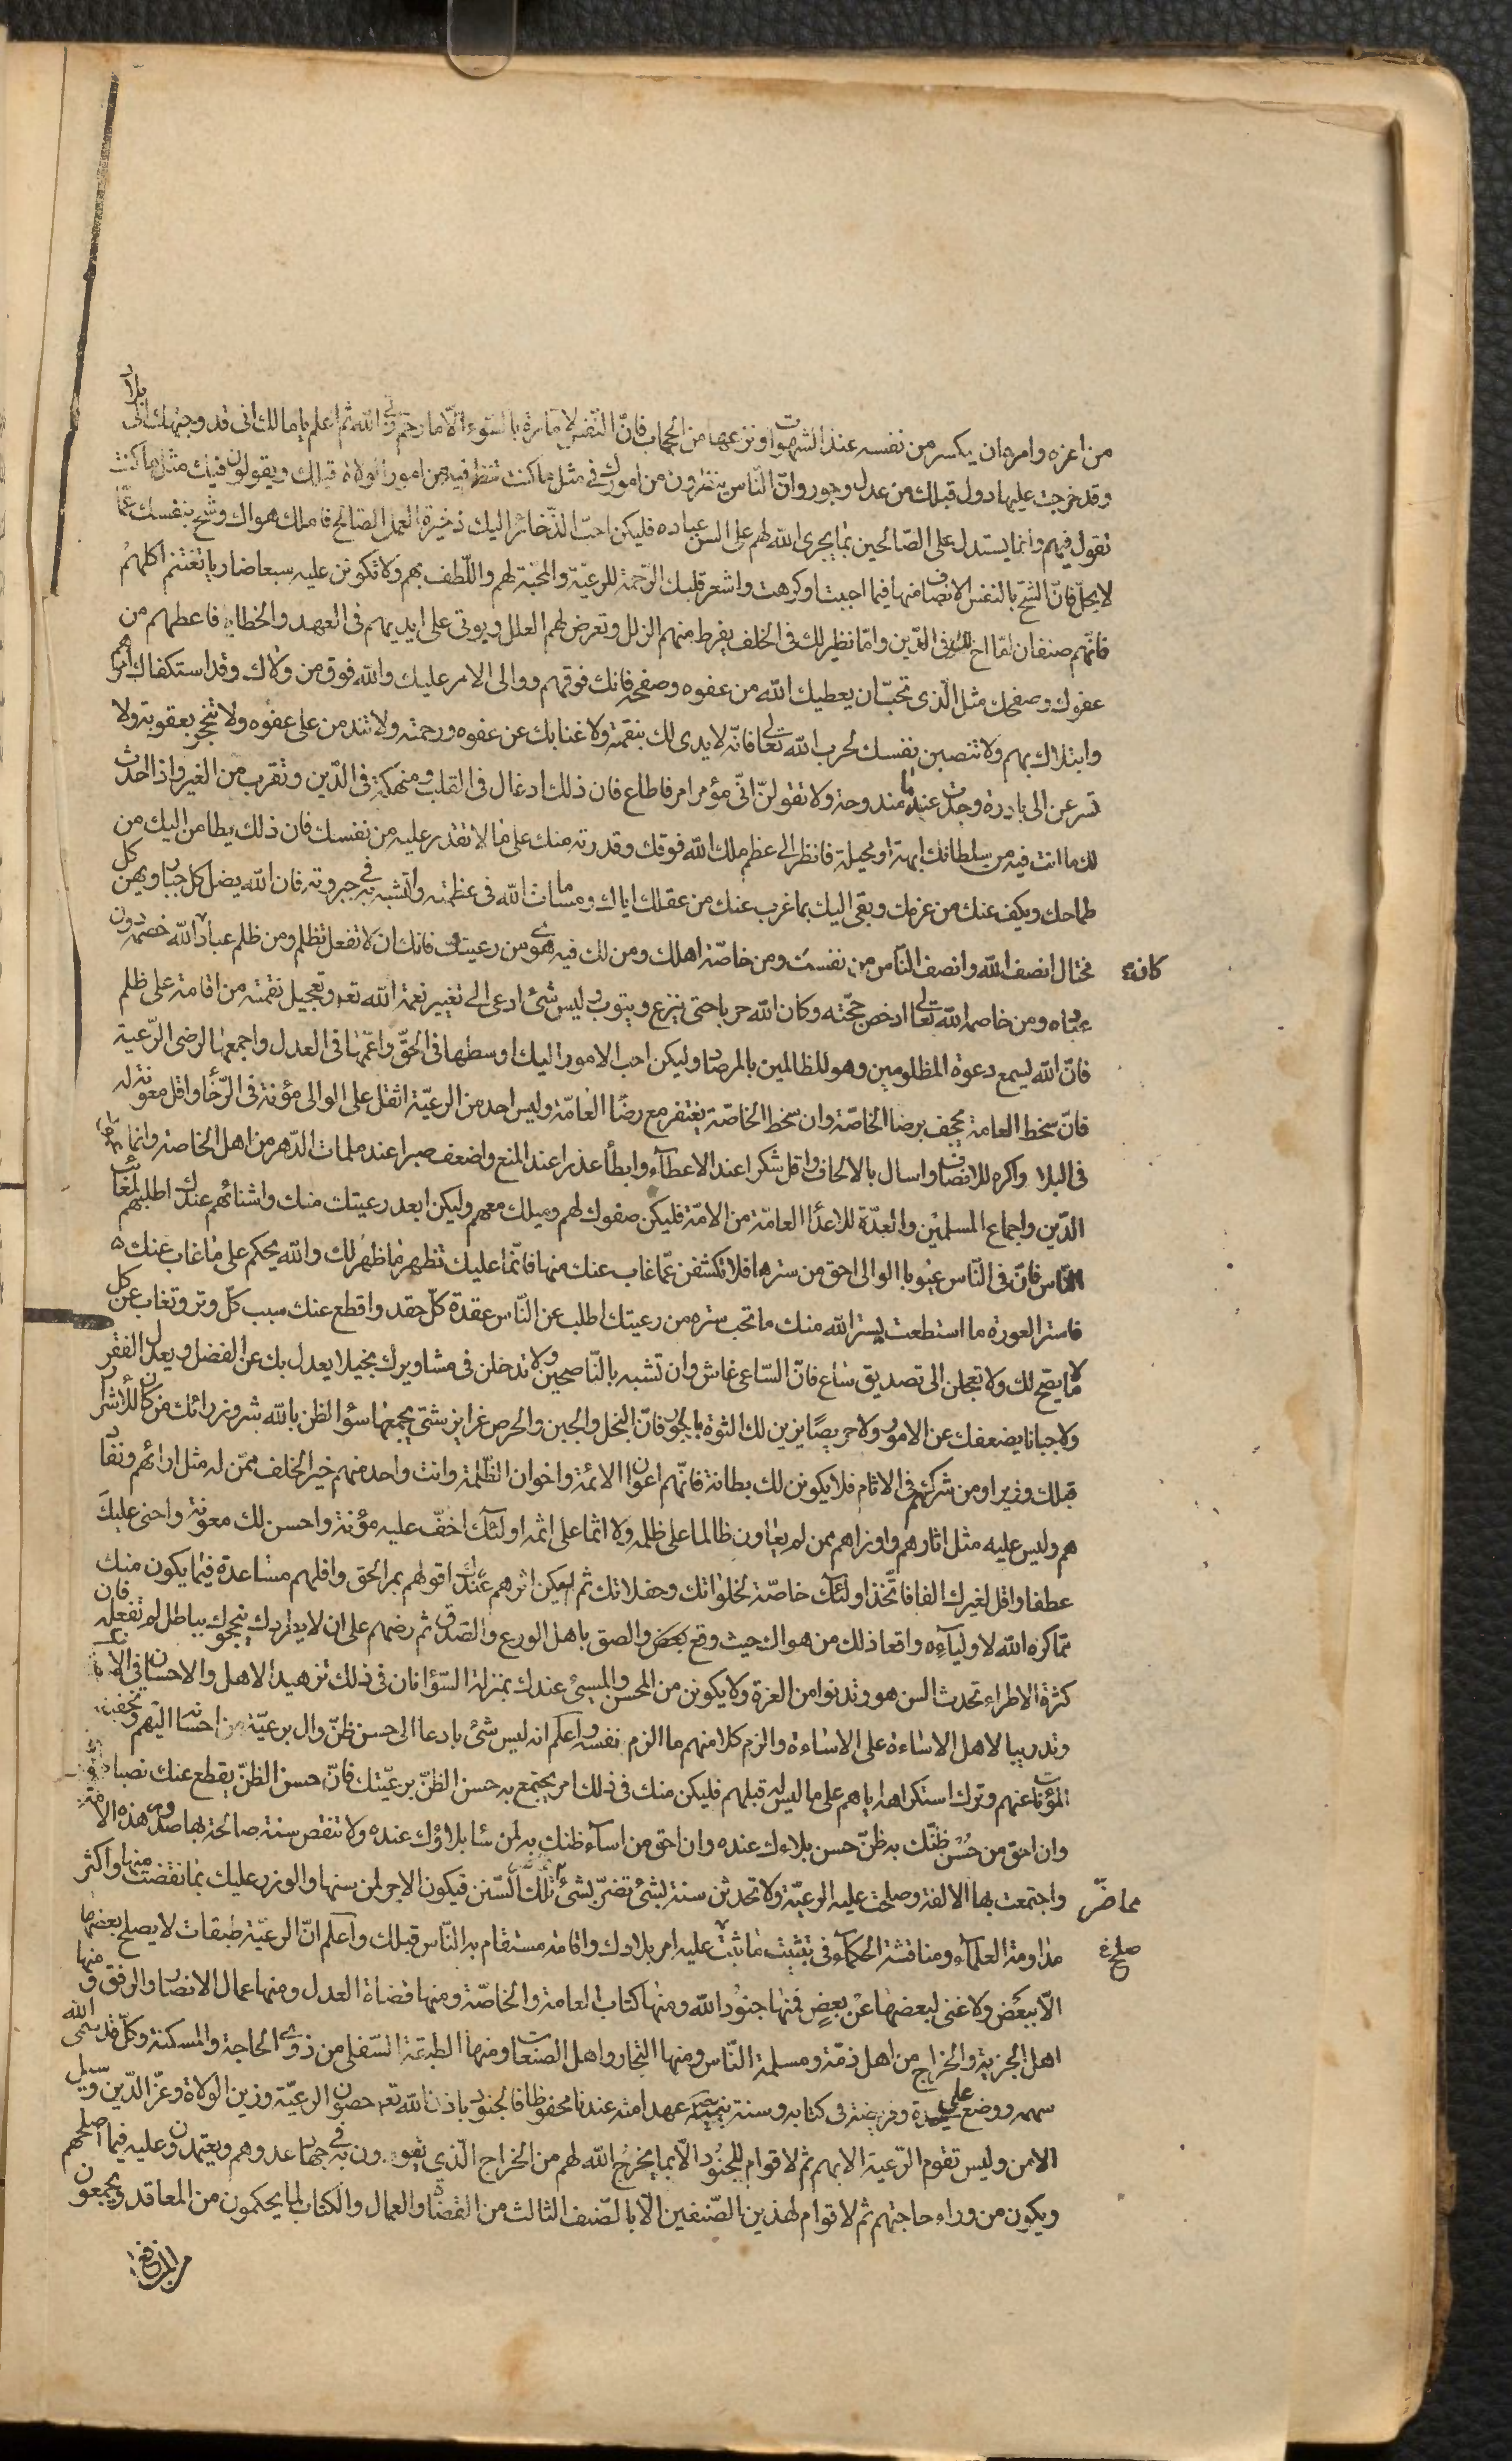 من اعزه وامره ان يكسر من نفسه عند الشهوات ونزعها من الجماب فانّ النّفس لامّارة بالسّوء الّا ما رحم ربّى الله ثم اعلم يا مالك انى قد وجهتك الى بلاد
وقد خرجت عليها دول قبلك من عدل وجور وانّ النّاس ينظرون من امورك فى مثل ما كنت تنظر فيه من امور الولاة قبلك ويقولون فيك مثل ما كنت
تقول فيهم وانما يستدل على الصّالحين بما يجرى الله لهم على السن عباده فليكن احبّ الذّخائر اليك ذخيرة العمل الصّالح فاملك هواك وشح بنفسك عمّا
لا يحلّ فانّ الشّح بالنفس الانصاف منها فيما احببت او كرهت واشعر قلبك الرّحمة للرعيّة والمحبّة لهم واللّطف بهم ولا تكونن عليه سبعا ضاريا تغتنم اكلهم
فانّهم صنفان امّا اخ لك فى الدّين وامّا نظير لك فى الخلف يفرط منهم الزلل وتعرض لهم العلل ويوتى على ايديهم فى العهد والخطاء فاعطهم من
عفوك وصفحك مثل الّذى تحبّ ان يعطيك الله من عفوه وصفحه فانك فوقهم ووالى الامر عليك والله فوق من ولاك وقد استكفاك امرهم
وابتلاك بهم ولا تنصبن نفسك لحرب الله تعالى فانّه لا يدى لك بنقمته ولا غنا بك عن عفوه ورحمته ولا تندمن على عفوه ولا تبجح بعقوبة ولا
تسرعن الى بادرة وجدت عنها مندوحة ولا تقولنّ انّى مؤمر امر فاطاع فان ذلك ادغال فى القلب ومنهكة فى الدّين وتقرب من الغير واذا احدث
لك ما انت فيه من سلطانك ابهة او مخيلة فانظر الى عظم ملك الله فوقك وقدرته منك على ما لا تقدر عليه من نفسك فان ذلك يطامن اليك من
طماحك ويكف عنك من غربك ويفى اليك بما غرب عنك من عقلك اياك ومسامات الله فى عظمته والتشبه به فى جبروته فان الله يضل كل جبار ويهين كل
مختال انصف الله وانصف النّاس من نفسك ومن خاصّة اهلك ومن لك فيه هوى من رعيتك فانك ان لا تفعل تظلم ومن ظلم عباد الله خصمه دون
كانه
عباده ومن خاصمه الله تعالى ادحض حجّته وكان الله حربا حتى ينزع ويتوب وليس شئ ادعى الى تغيير نعمة الله تعه وتعجيل نقمته من اقامة على ظلم
فانّ الله يسمع دعوة المظلومين وهو للظالمين بالمرصاد وليكن احب الامور اليك اوسطها فى الحقّ واعمّها فى العدل واجمعها لرضى الرّعية
فانّ سخط العامة يجحف برضا الخاصّة وان سخط الخاصّة يغتفر مع رضا العامّة وليس احد من الرعيّة اثقل على الوالى مؤنة فى الرّخا واقل معونة له
فى البلا واكره للانصاف واسال بالالحاف واقل شكرا عند الاعطآء وابطأ عذرا عند المنع واضعف صبرا عند ملمات الدّهر من اهل الخاصة وانما
الدّين واجماع المسلمين والعدّة للاعدا العامّة من الامّة فليكن صفوك لهم وميلك معهم وليكن ابعد رعيتك منك واشنائهم عندك اطلبهم لمعائب
النّاس فانّ فى النّاس عيوبا الوالى احق من سترها فلا تكشفن عمّا غاب عنك منها فانّما عليك تطهير ما ظهر لك والله يحكم على ما غاب عنك
فاستر العورة ما استطعت يستر الله منك ما تحب ستره من رعيتك اطلب عن النّاس عقدة كلّ حقد واقطع عنك سبب كلّ وتر وتغاب عن كل
ما لا يضح لك ولا تعجلن الى تصديق ساع فانّ السّاعى غاش وان تشبه بالنّاصحين ولا تدخلن فى مشاورتك بخيلا يعدل بك عن الفضل ويعدك الفقر
ولا جبانا يضعفك عن الامور ولا حريصا يزين لك الشرة بالجور فانّ البخل والجبن والحرص غرايز شتى يجمعها سؤ الظن بالله شر وزرائك من كان للاشرار
قبلك وزيرا ومن شركهم فى الاثام فلا يكونن لك بطانة فانّهم اعوان الائمة واخوان الظّلمة وانت واحد منهم خير الخلف ممّن له مثل ارائهم ونفا
هم وليس عليه مثل اثارهم واوزارهم ممن لم يعاون ظالما على ظلمه ولا اثما على اثمه اولئك اخفّ عليه مؤنة واحسن لك معونة واحنى عليك
عطفا واقل لغيرك الفا فاتّخذ اولئك خاصّة لخلواتك وحفلاتك ثم ليكن اثرهم عندك اقولهم بمر الحق واقلهم مساعدة فيما يكون منك
ممّا كره الله لاوليآءه واقعا ذلك من هواك حيث وقع والصق باهل الورع والصّدق ثم رضهم على ان لا يطروك ولا يبجحوك بباطل لم تفعله فان
كثرة الاطراء تحدث الزهو وتدنوا من العزة ولا يكونن المحسن والمسيئ عندك بمنزلة السّوّا فان فى ذلك تزهيد الاهل الاحسان فى الاحسان
وتدريبا لاهل الاساءة على الاساءة والزم كلا منهم ما الزم نفسه واعلم انه ليس شئ بادعا الى حسن ظنّ وال برعيّة من احسانه اليهم وتخفيف
المؤنات عنهم وترك استكراهه اياهم على ما ليس له قبلهم فليكن منك فى ذلك امر يجتمع به حسن الظّنّ برعيّتك فانّ حسن الظنّ يقطع عنك نصبا
وان احق من حسن ظنّك به ظنّ حسن بلاءك عنده وان احق من اسآء ظنك به لمن سا بلاؤك عنده ولا تنقض سنة صالحة بها صدور هذه الامة
واجتمعت بها الالفة وصلحت عليه الرعيّة ولا تحدثن سنة بشئ تضرّ بشئ تلك السّنن فيكون الاجر لمن سنها والوزر عليك بما نقضت منها واكثر
مماضّر
مداومة العلمآء ومناقشة الحكمآء فى تثبيت ما ثبت عليه امر بلادك واقامة ما استقام به النّاس قبلك واعلم انّ الرعيّة طبقات لا يصلح بعضها
صلح
الّا ببعض ولا غنى لبعضها عن بعض فمنها جنود الله ومنها كتاب العامة والخاصّة ومنها قضاة العدل ومنها عمال الانصاف والرفق ومنها
اهل الجزية والخراج من اهل ذمّة ومسلمة النّاس ومنها التجار واهل الصنعات ومنها الطبقة السّفلى من ذوى الحاجة والمسكنة وكلّ قد سمى الله
سهمه ووضع على حده وفريضة فى كتابه وسنة نبيه عهدا منه عندنا محفوظا فالجنود باذن الله تعه حصون الرعيّة وزين الولاة وعزّ الدّين وسبل
الامن وليس تقوم الرّعية الا بهم ثم لا قوام للجنود الّا بما يخرج الله لهم من الخراج الّذى يقوون به فى جهاد عدوهم ويعتمدون عليه فيما اصلحهم
ويكون من وراء حاجتهم ثم لا قوام لهذين الصّنفين الّا بالصّنف الثالث من القضاة والعمال والكتاب لما يحكمون من المعاقد ويجمعون
من المنافع